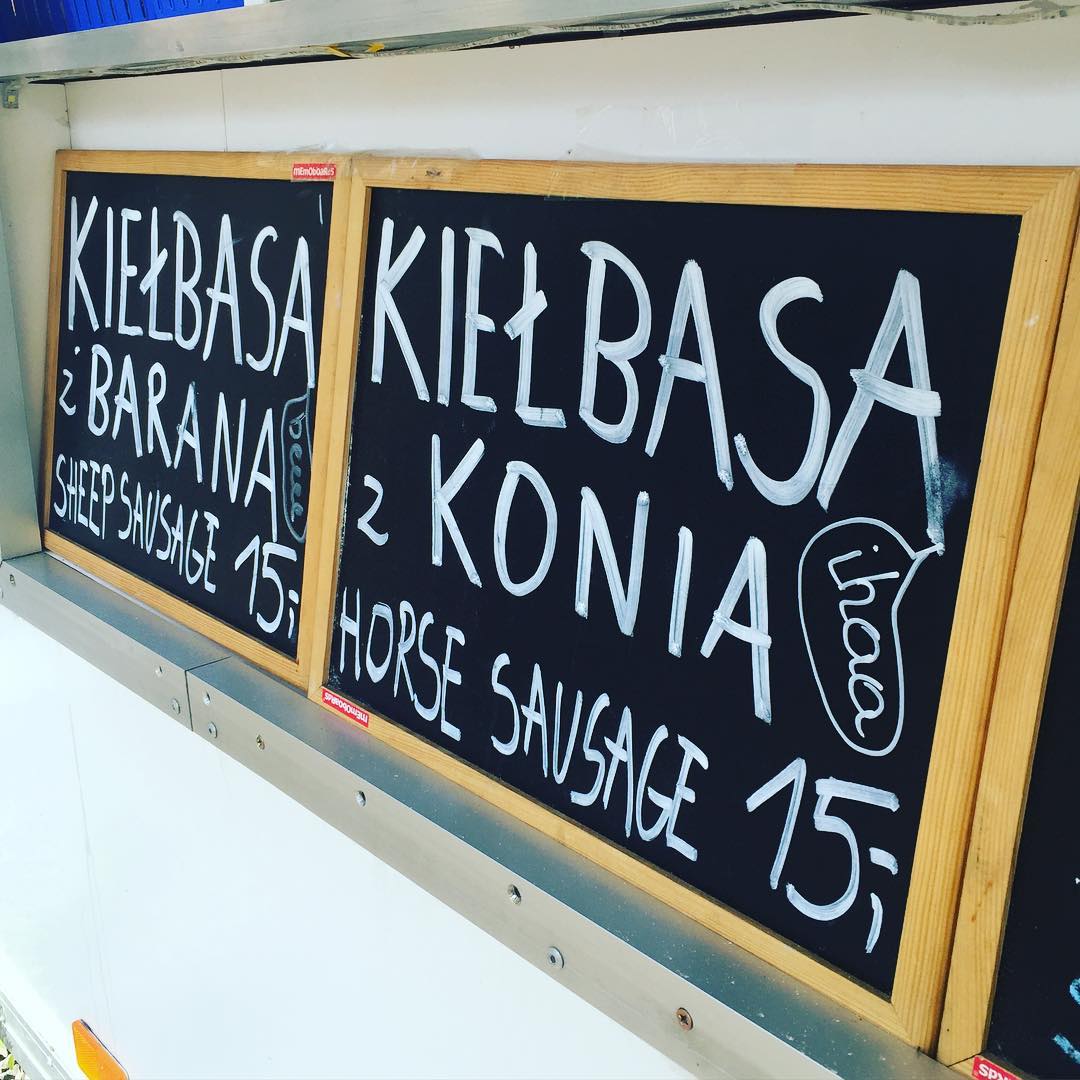 memoboards
KIEŁBASA
z BARANA
beeee
SHEEP SAUSAGE 15,-
KIEŁBASA
z KONIA
ihaaa
HORSE SAUSAGE 15,-
memoboards